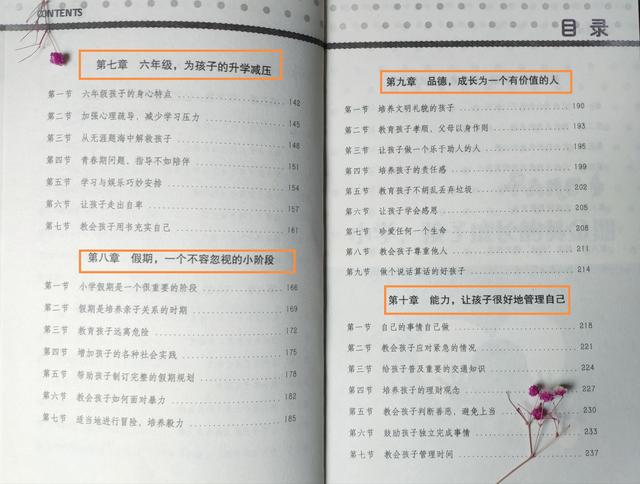 CONTENTS
第七章 六年级，为孩子的升学减压
第一节 六年级孩子的身心特点 142
第二节 加强心理疏导，减少学习压力 145
第三节 从无涯题海中解救孩子 148
第四节 青春期问题，指导不如陪伴 151
第五节 学习与娱乐巧妙安排 154
第六节 让孩子走出自卑 157
第七节 教会孩子用书充实自己 161
第八章 假期，一个不容忽视的小阶段
第一节 小学假期是一个很重要的阶段 166
第二节 假期是培养亲子关系的时期 169
第三节 教育孩子远离危险 172
第四节 增加孩子的各种社会实践 175
第五节 帮助孩子制订完整的假期规划 178
第六节 教会孩子如何面对暴力 182
第七节 适当地进行冒险，培养毅力 185
目录
第九章 品德，成长为一个有价值的人
第一节 培养文明礼貌的孩子 190
第二节 教育孩子孝顺，父母以身作则 193
第三节 让孩子做一个乐于助人的人 195
第四节 培养孩子的责任感 199
第五节 教育孩子不胡乱丢弃垃圾 202
第六节 让孩子学会感恩 205
第七节 珍爱任何一个生命 208
第八节 教会孩子尊重他人 211
第九节 做个说话算话的好孩子 214
第十章 能力，让孩子很好地管理自己
第一节 自己的事情自己做 218
第二节 教会孩子应对紧急的情况 221
第三节 给孩子普及重要的交通知识 224
第四节 培养孩子的理财观念 227
第五节 教会孩子判断善恶，避免上当 230
第六节 鼓励孩子独立完成事情 233
第七节 教会孩子管理时间 237